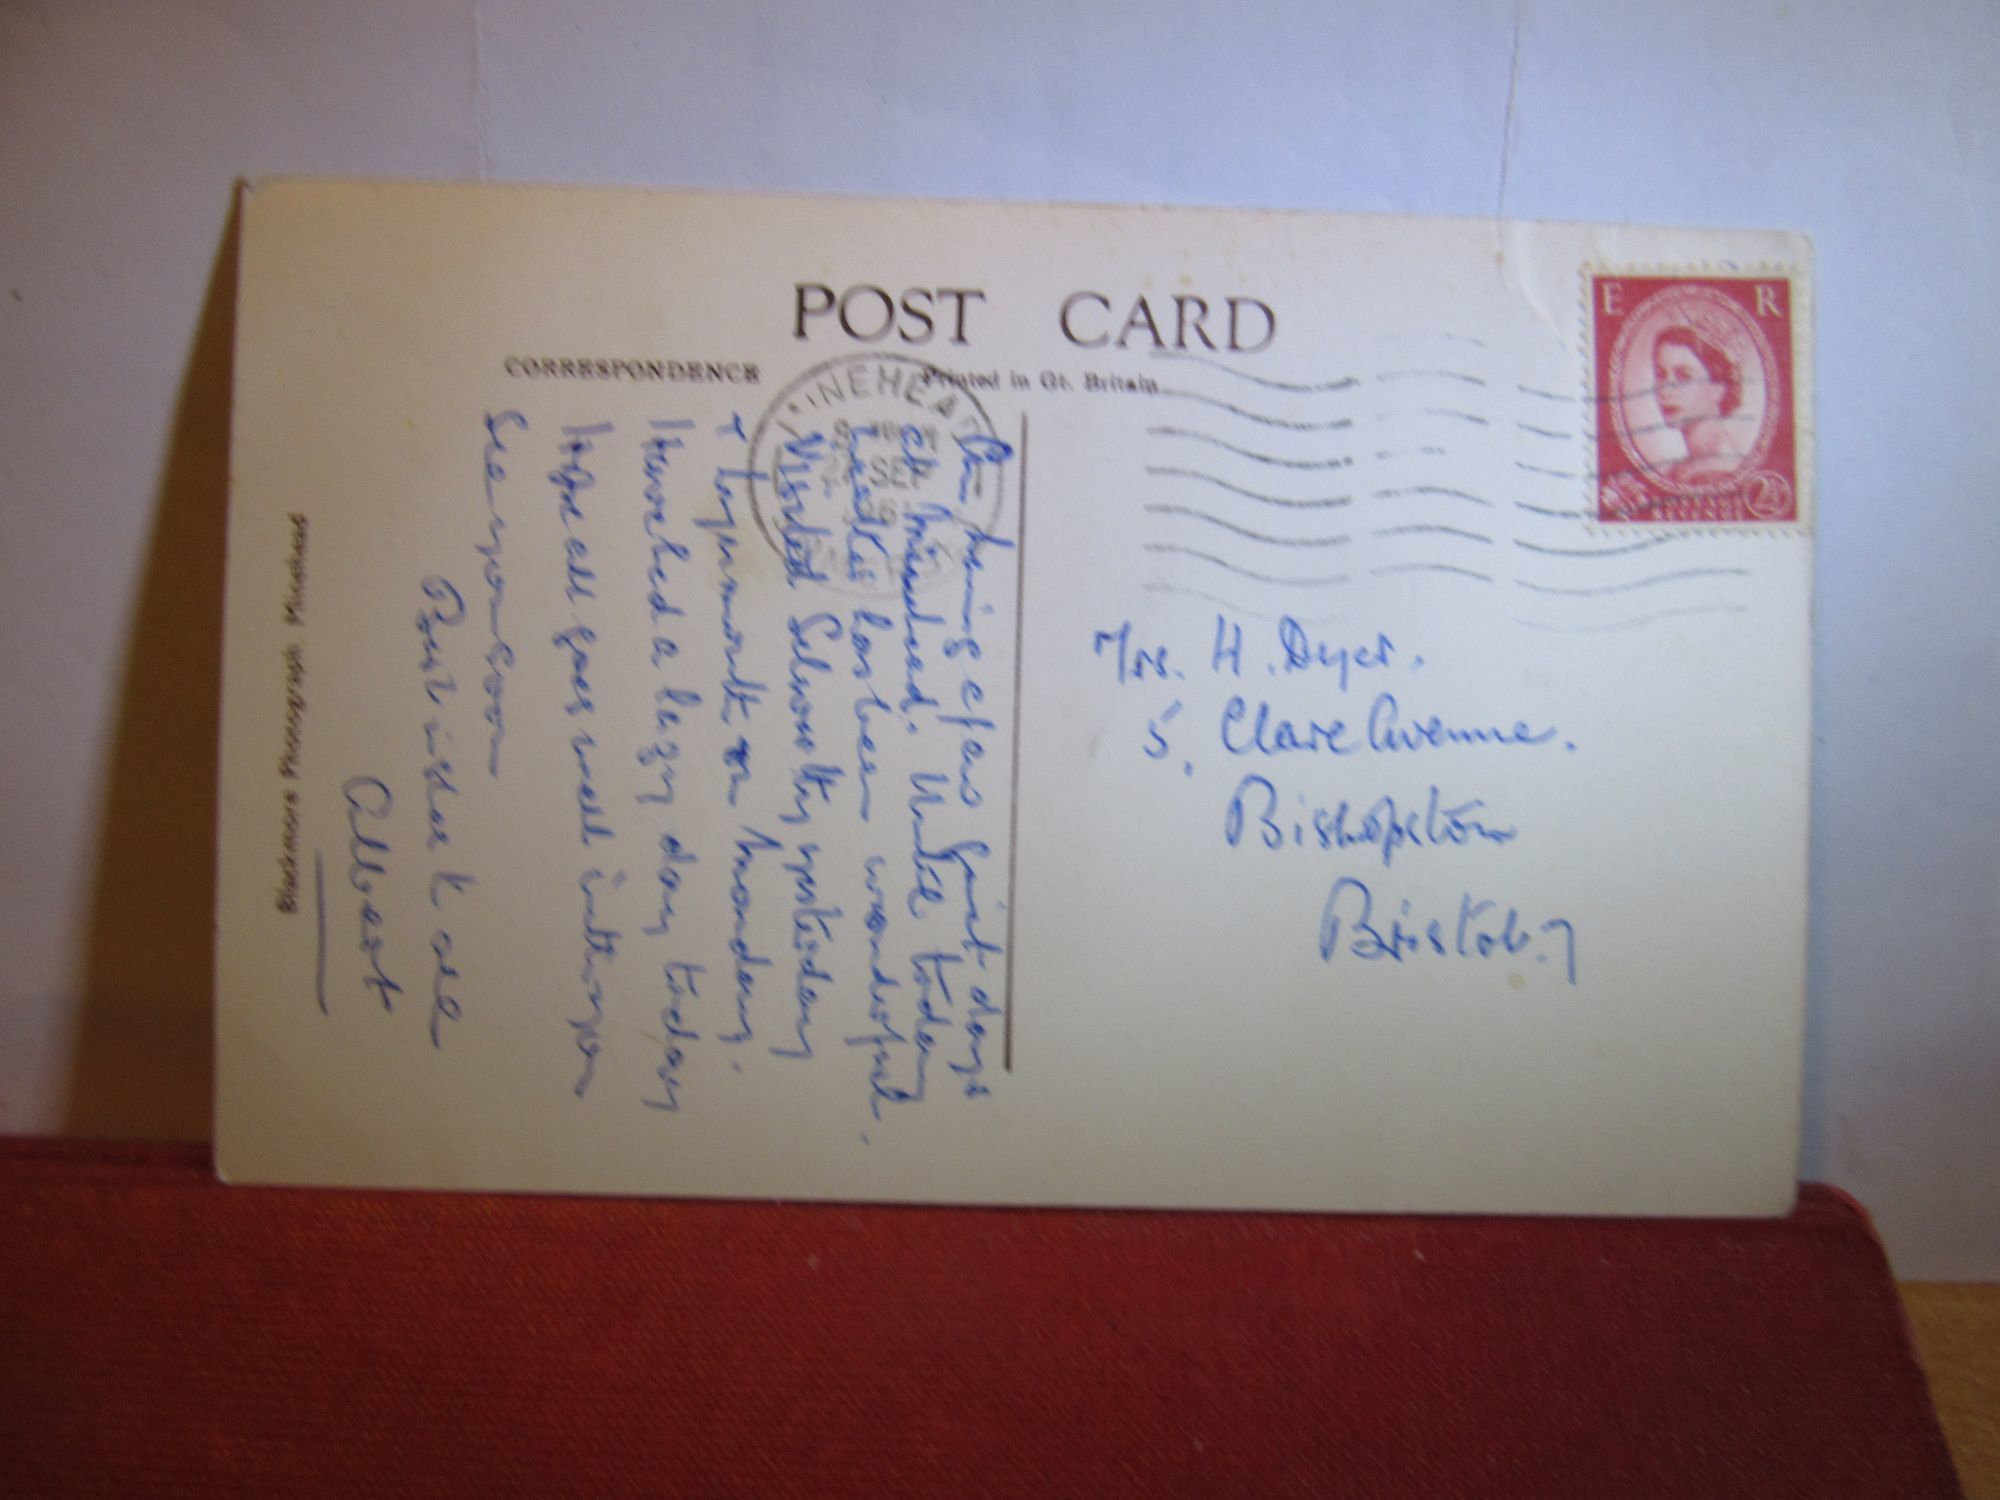 POST CARD
CORRESPONDENCE
Printed in Gt. Britain
MINEHEAD
SEP
E R
2½
REVENUE
Am having a few quiet days
at Minehead. Until today
weather has been wonderful.
Visited Selworthy yesterday
+ Lynmouth on Monday.
Have had a lazy day today
Hope all goes well with you
See you soon
Best wishes to all
Albert
Blackmore Photograph Minehead
Mrs. H. Dyer.
5, Clare Avenue.
Bishopston
Bristol. 7